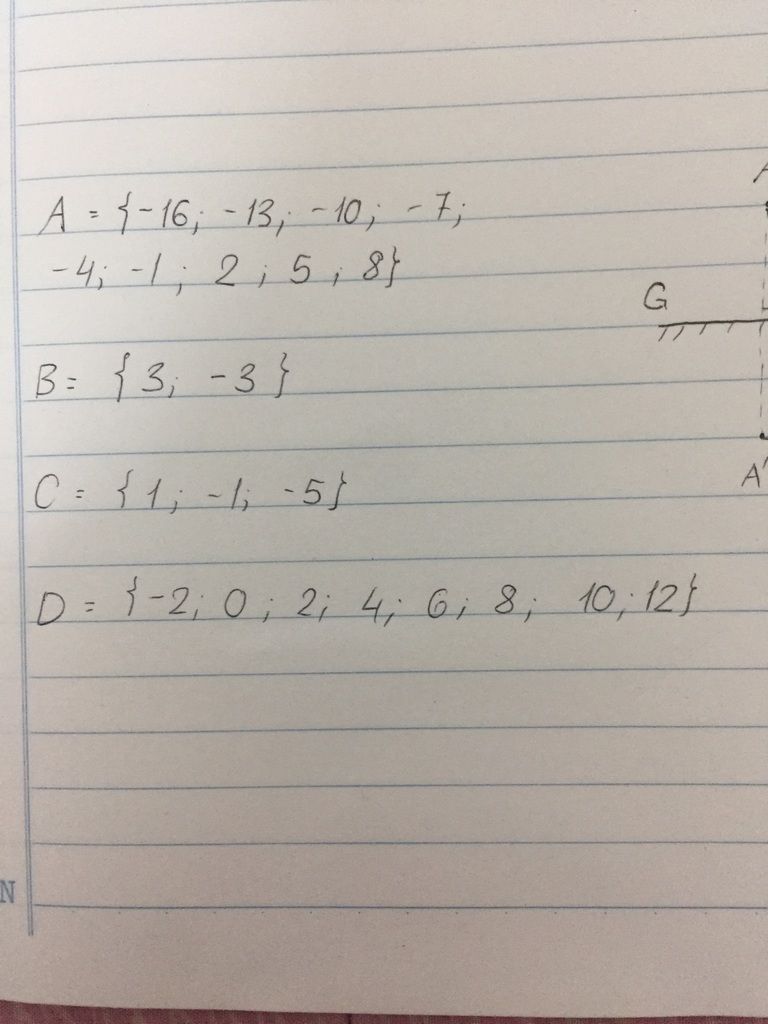 A = {-16; -13; -10; -7;
-4; -1; 2; 5; 8}
G
B = {3; -3}
A'
C = {1; -1; -5}
D = {-2; 0; 2; 4; 6; 8; 10; 12}
N